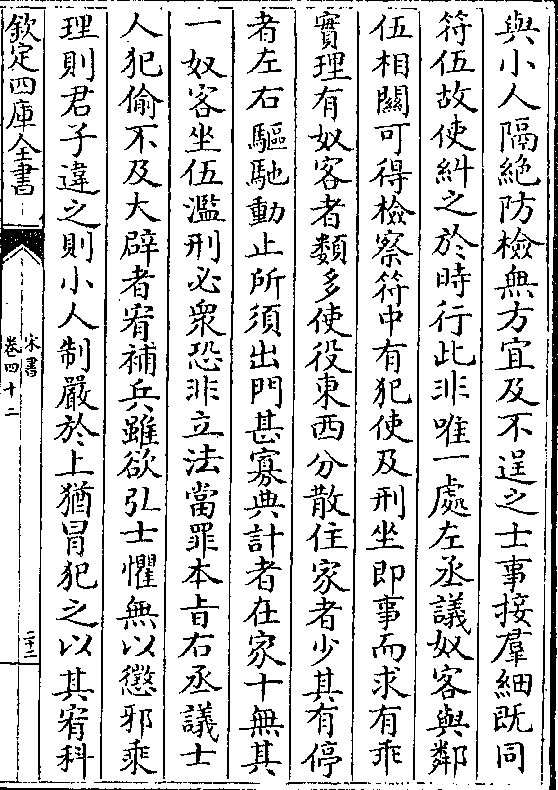 與小人隔絶防檢無方宜及不逞之士事接羣細既同
符伍故使糾之於時行此非唯一處左丞議奴客與鄰
伍相關可得檢察符中有犯使及刑坐即事而求有乖
實理有奴客者類多使役東西分散住家者少其有停
者左右驅馳動止所須出門甚寡典計者在家十無其
一奴客坐伍濫刑必衆恐非立法當罪本旨右丞議士
人犯偷不及大辟者宥補兵雖欲弘士懼無以懲邪乘
理則君子違之則小人制嚴於上猶冒犯之以其宥科
欽定四庫全書
宋書
卷四十二
二十二